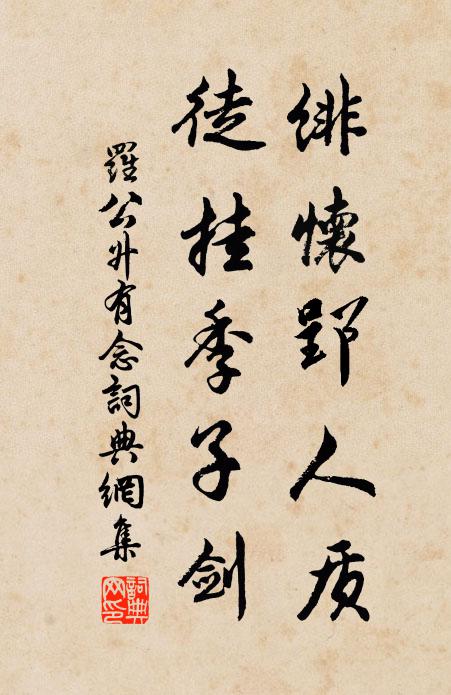 緋懷郢人质
徒挂季子剑
羅公升有念詞典網集
詞典网印